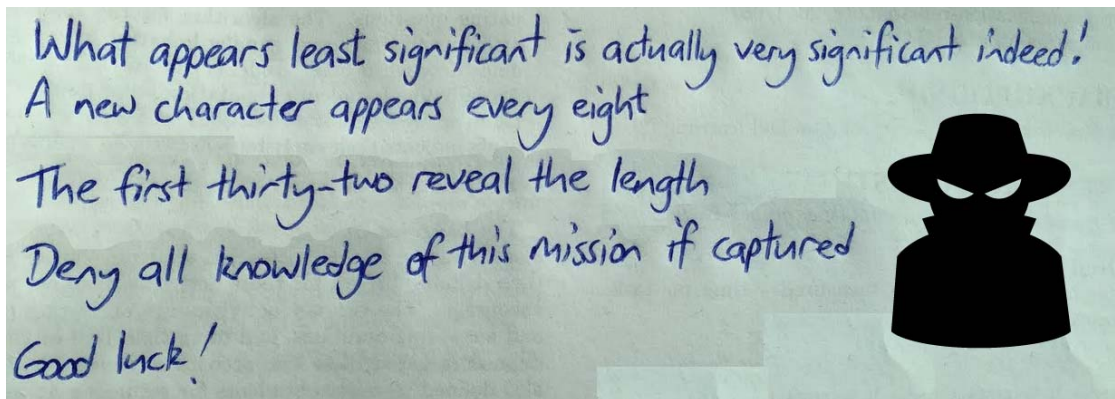 What appears least significant is actually very significant indeed!
A new character appears every eight
The first thirty-two reveal the length
Deny all knowledge of this mission if captured
Good luck!